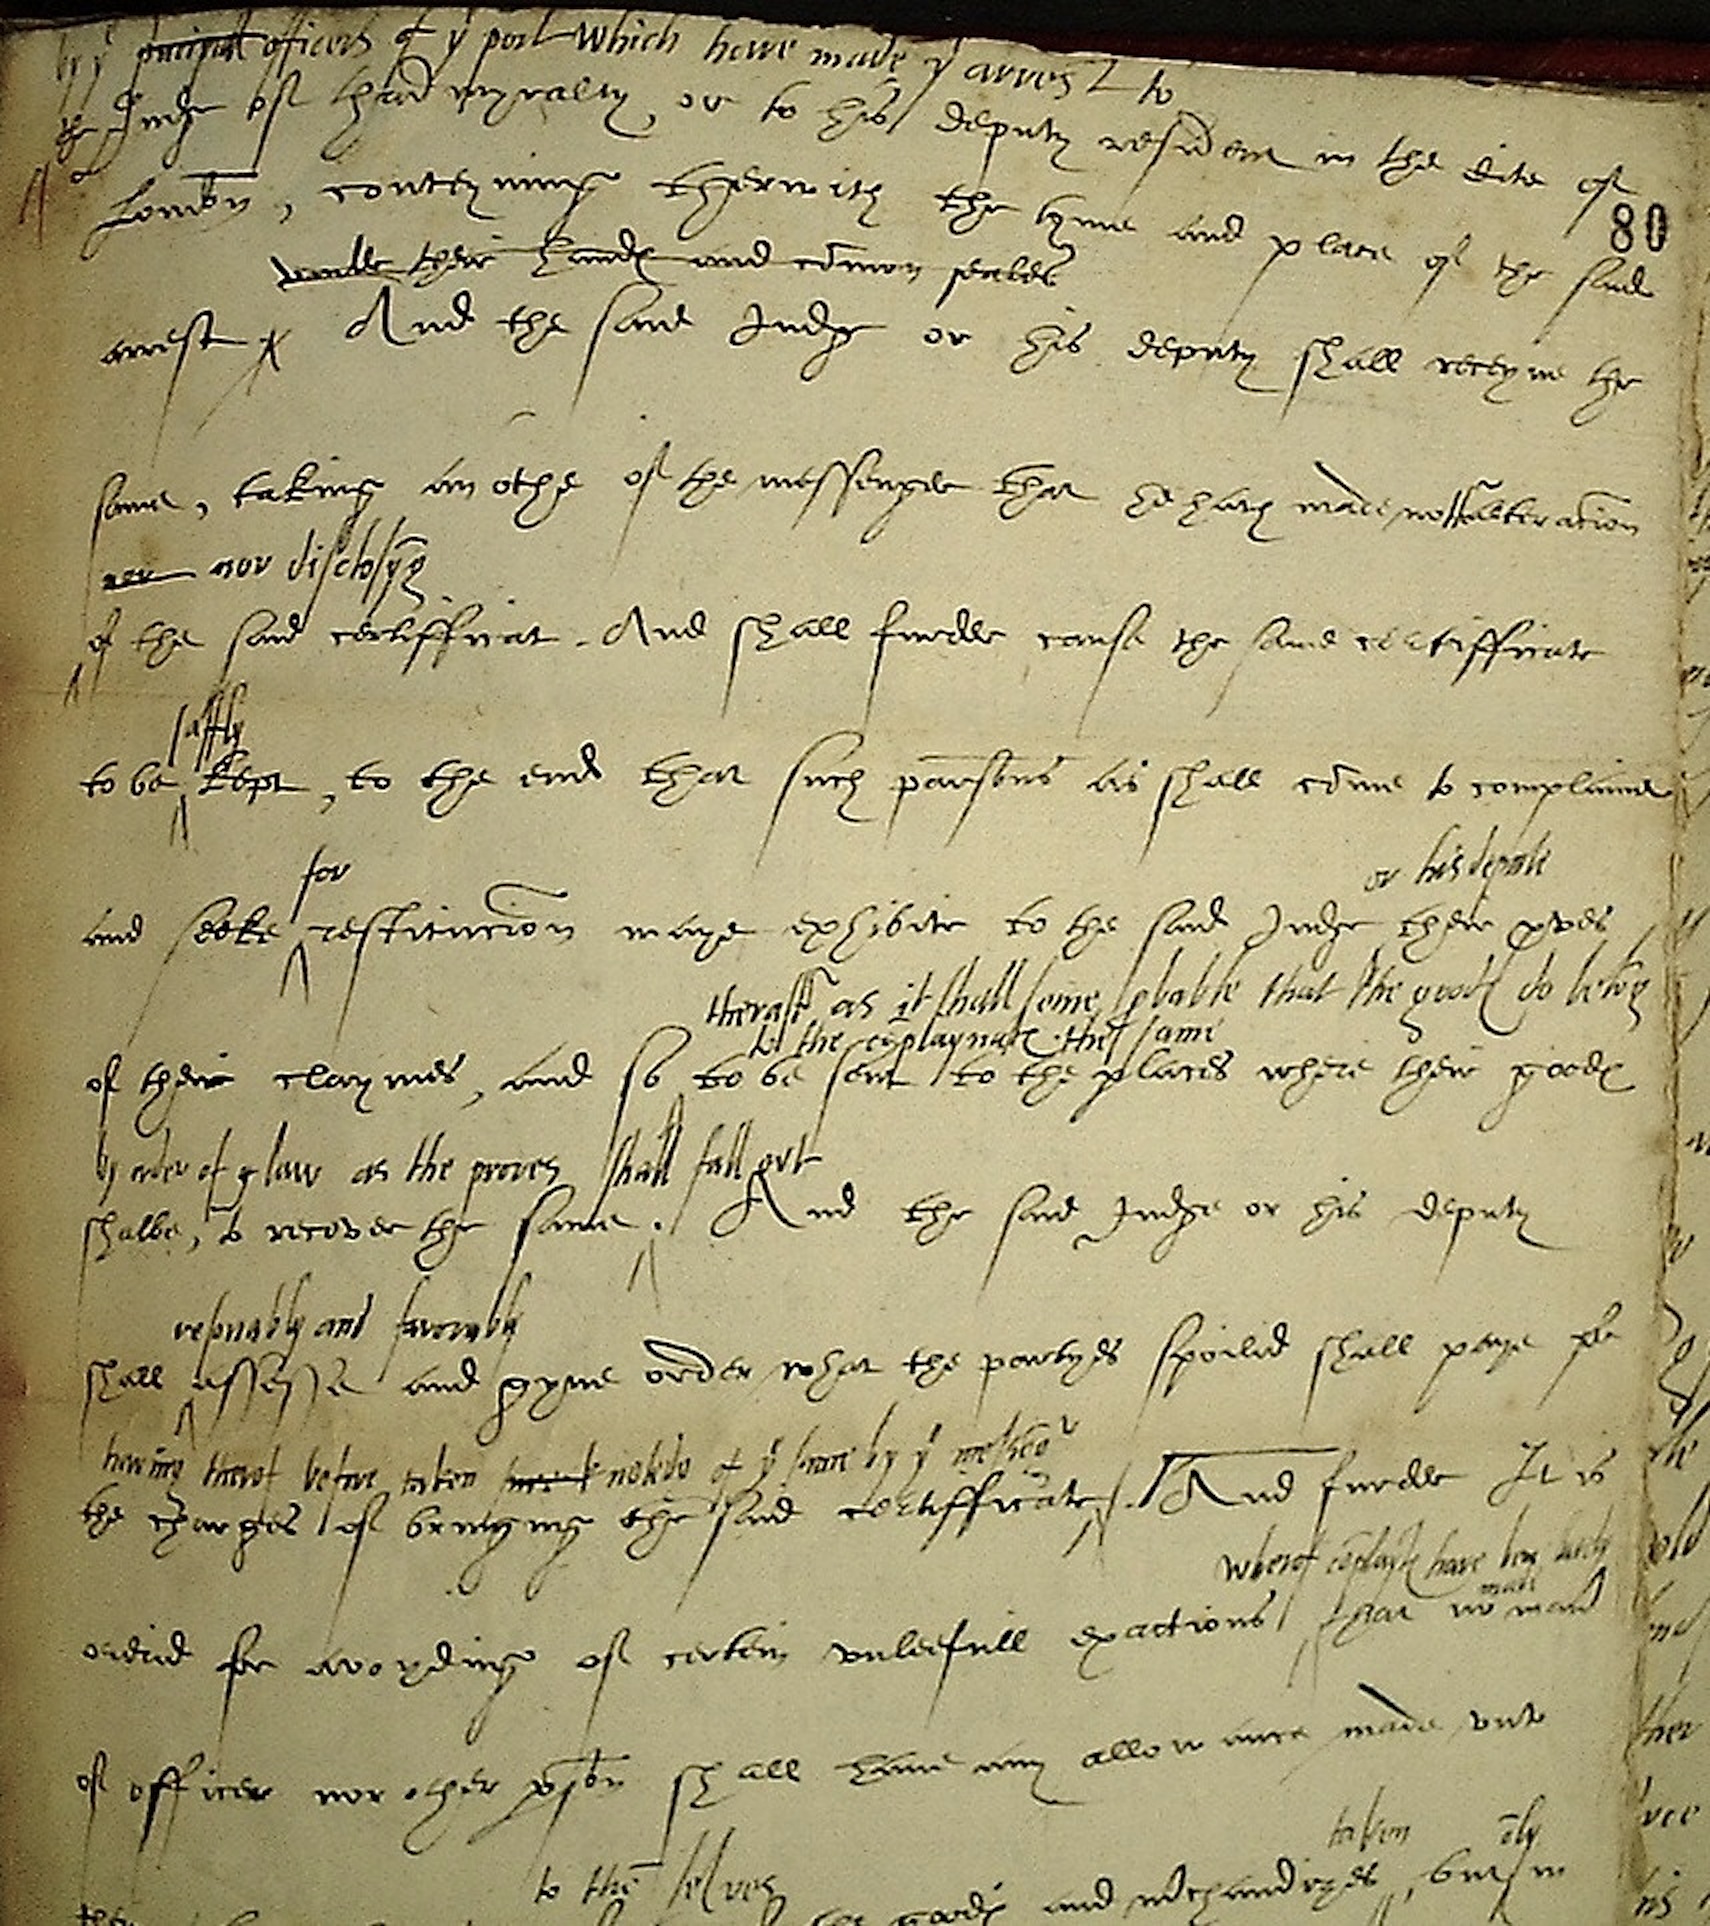 by yͤ principall officers of yͤ port which have made yͤ arrest to
the Judge of thadmyralty, or to his deputy resident in the Citie of
80
London, conteyning therwith the tyme and place of the said
under their handes and cōmon seales
arrest. And the said Judge or his deputy shall receyve the
same, taking an othe of the messenger that he hath made no alteracion
nor nor disclosyng
of the said certifficat. And shall further cause the same certifficate
saffly
to be kept, to the end that such parsons as shall cōme to complaine
for or his depute
and seeke restitucion maye exhibite to the said Judge their proves
as it shall seme probable that the goodes do belong
to the cōplaynantes the same
of their claymes, and so to be sent to the places where their goodes
by order of yͤ law as the proves shall fall out
shalbe, to recover the same. And the said Judge or his deputy
resonably and favorably
shall assesse and gyve order what the partyes spoiled shall paye for
having therof before taken of yͤ same by yͤ
the charges of bringing the said certifficate. And further It is
wherof cōplaintes have ben lately
made
ordrid for avoyding of certein unlefull exactions that no maner
of officer nor other person shall have any allowance made unto
taken ōly
to thē selves
goodes and merchandizes, but in